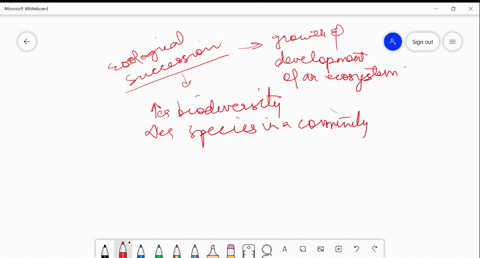 Microsoft Whiteboard
Sign out
ecological succession → growth & development of an ecosystem.
↑es biodiversity
↑es species in a community